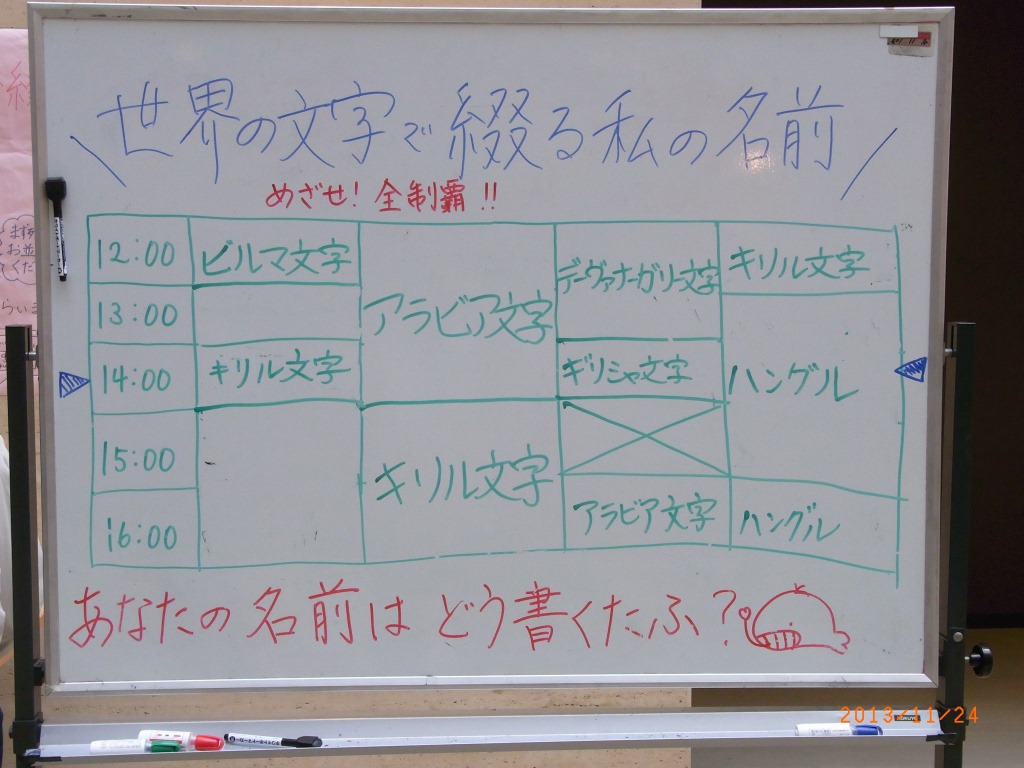 世界の文字で綴る私の名前
めざせ！全制覇!!
12:00 ビルマ文字 アラビア文字 デーヴァナーガリー文字 キリル文字
13:00 ハングル
14:00 キリル文字 ギリシャ文字
15:00 キリル文字
16:00 アラビア文字 ハングル
あなたの名前はどう書くたふ？
まず
お並
くだ
らいま
2013/11/24